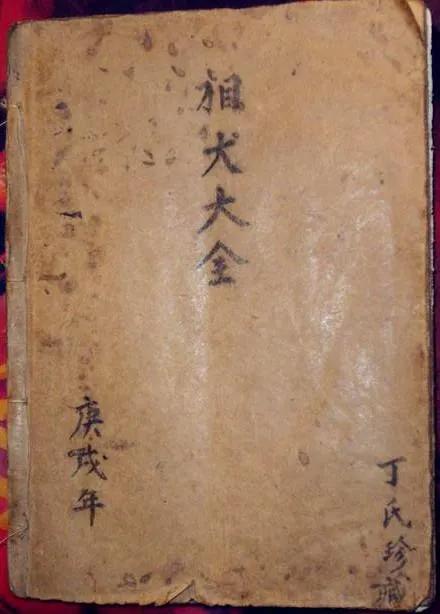 相犬大全
丁氏珍藏
庚戌年